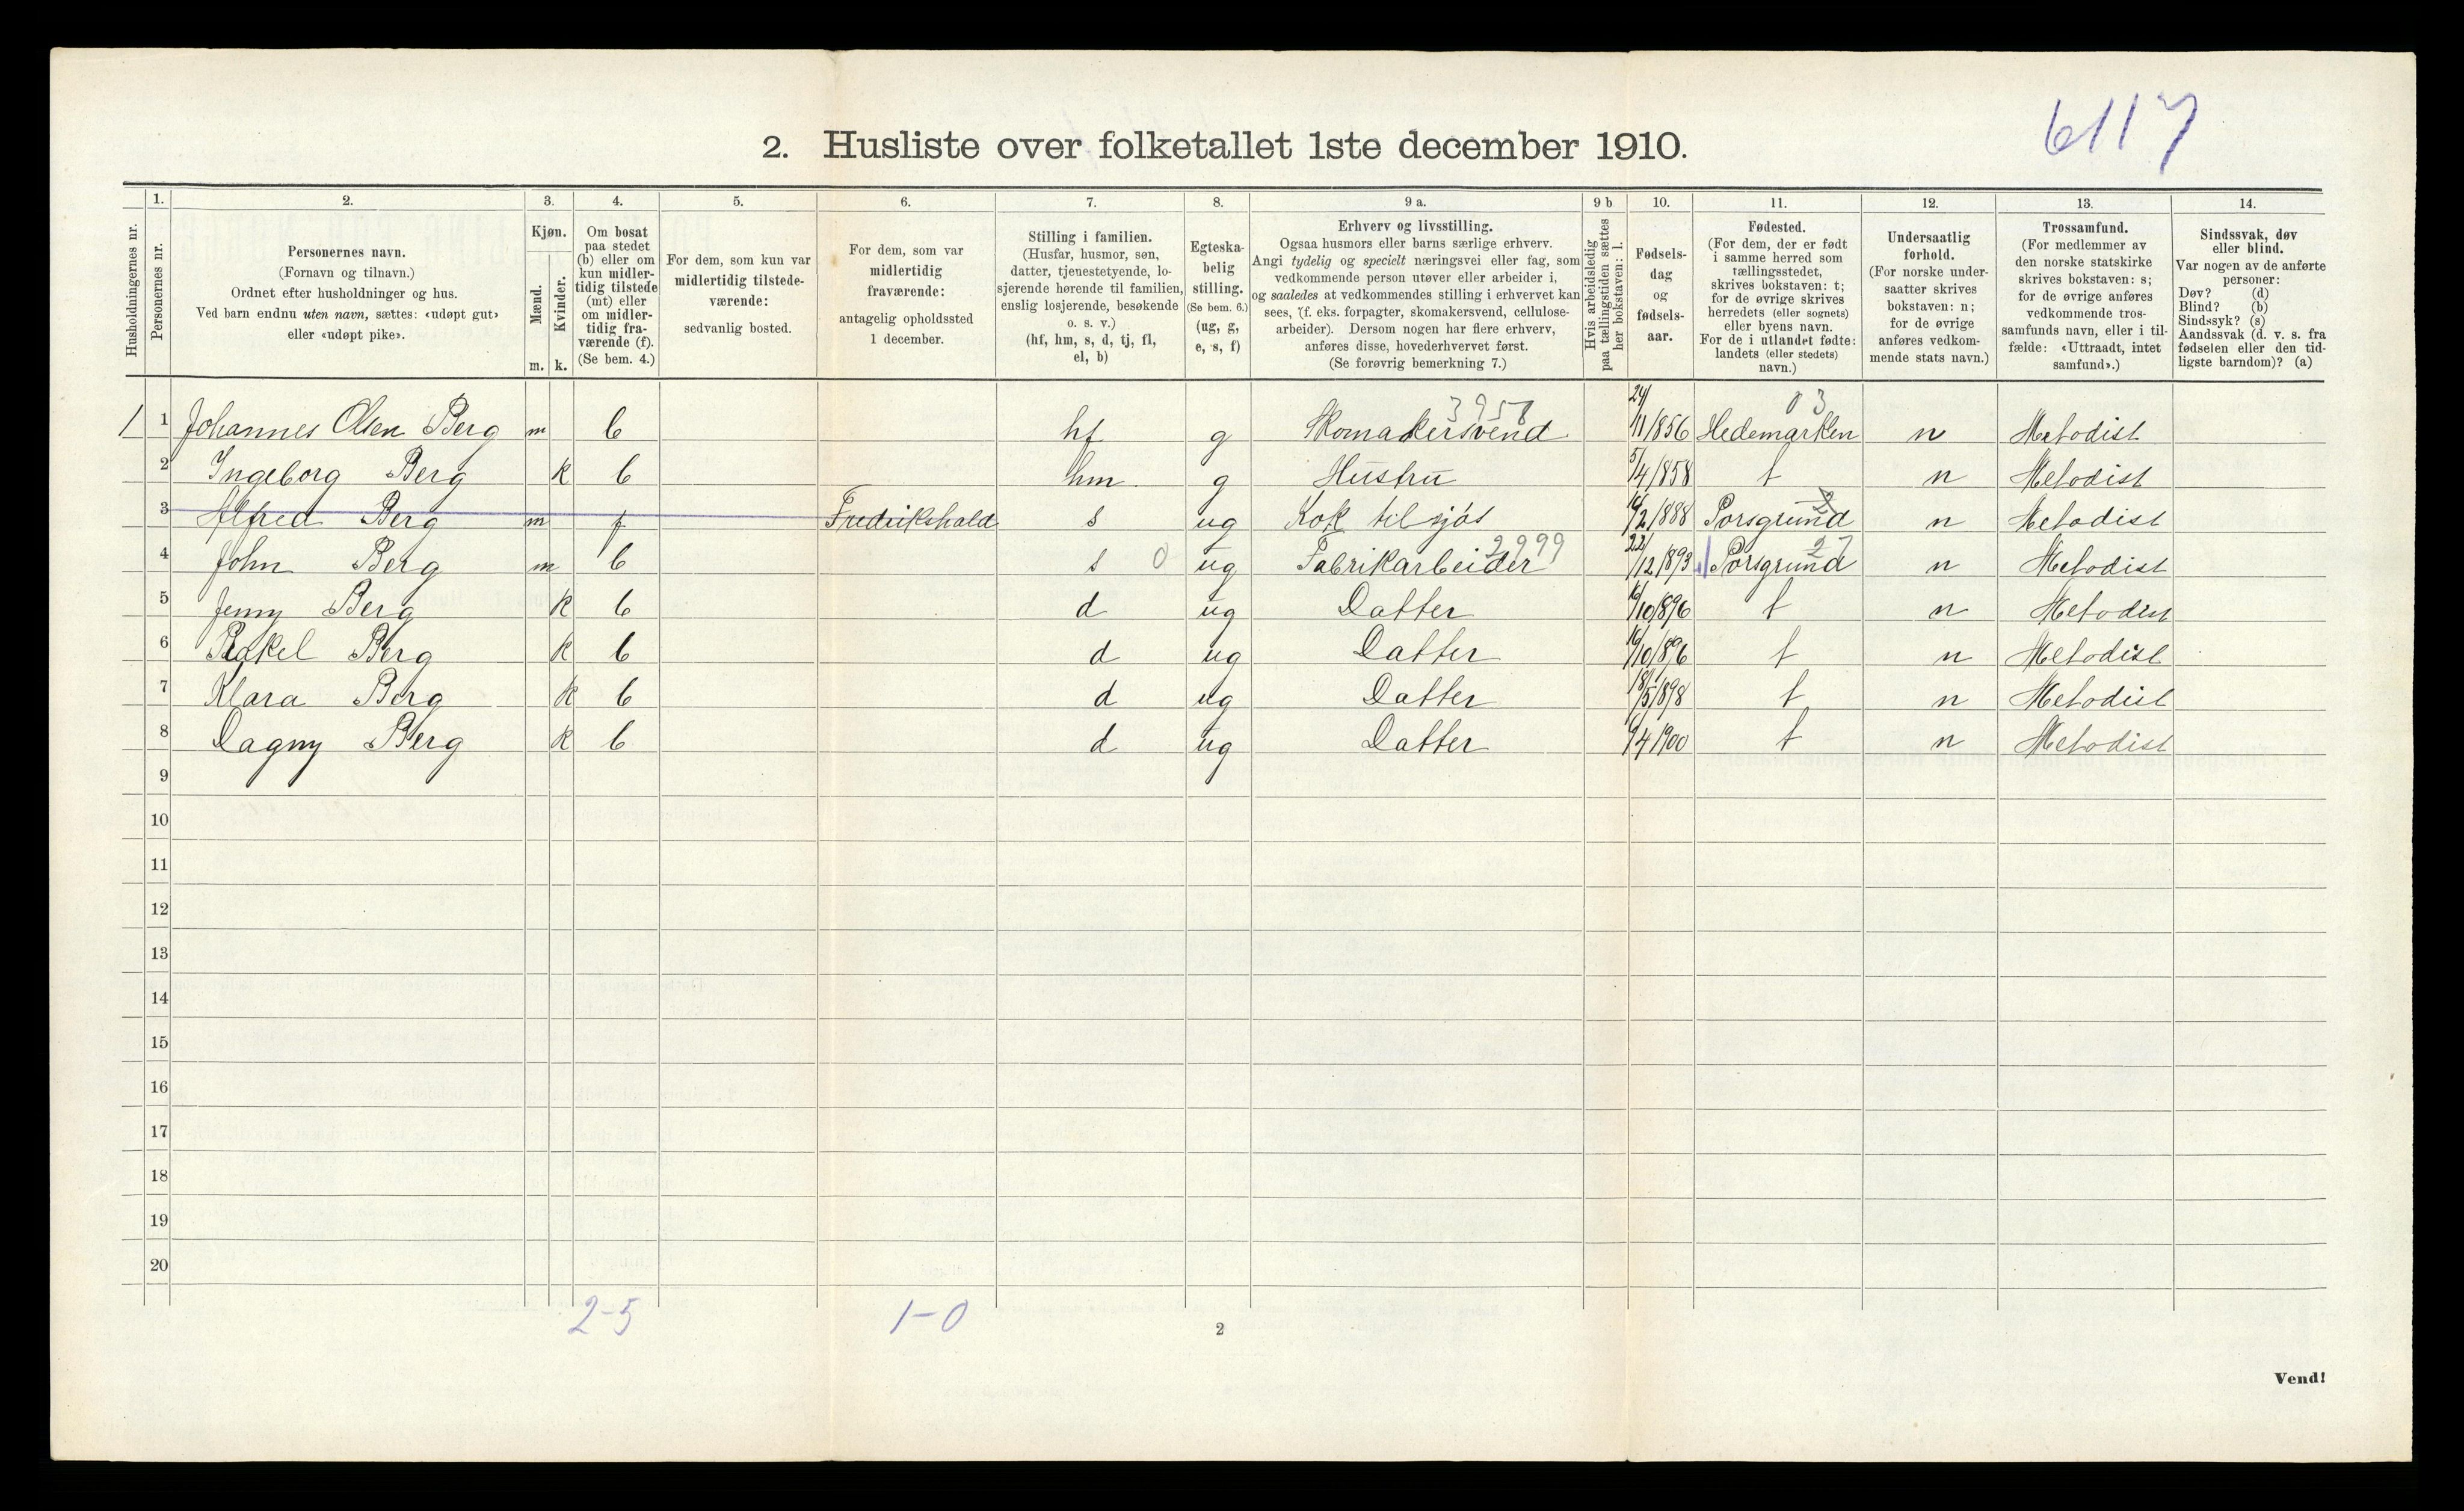 6117
2. Husliste over folketallet 1ste december 1910.
Husholdningernes nr.
1. Personernes nr.
2. Personernes navn.
(Fornavn og tilnavn.)
Ordnet efter husholdninger og hus.
Ved barn endnu uten navn, sættes: «udøpt gut»
eller «udøpt pike».
3. Kjøn.
Mænd. m.
Kvinder. k.
4. Om bosat
paa stedet
(b) eller om
kun midler-
tidig tilstede
(mt) eller
om midler-
tidig fra-
værende (f).
(Se bem. 4.)
5. For dem, som kun var
midlertidig tilstede-
værende:
sedvanlig bosted.
6. For dem, som var
midlertidig
fraværende:
antagelig opholdssted
1 december.
7. Stilling i familien.
(Husfar, husmor, søn,
datter, tjenestetyende, lo-
sjerende hørende til familien,
enslig losjerende, besøkende
o. s. v.)
(hf, hm, s, d, tj, fl,
el, b)
8. Egteska-
belig
stilling.
(Se bem. 6.)
(ug, g,
e, s, f)
9 a. Erhverv og livsstilling.
Ogsaa husmors eller barns særlige erhverv.
Angi tydelig og specielt næringsvei eller fag, som
vedkommende person utøver eller arbeider i,
og saaledes at vedkommendes stilling i erhvervet kan
sees, (f. eks. forpagter, skomakersvend, cellulose-
arbeider). Dersom nogen har flere erhverv,
anføres disse, hovederhvervet først.
(Se forøvrig bemerkning 7.)
9 b Hvis arbeidsledig
paa tællingstiden sættes
her bokstaven: l.
10. Fødsels-
dag
og
fødsels-
aar.
11. Fødested.
(For dem, der er født
i samme herred som
tællingsstedet,
skrives bokstaven: t;
for de øvrige skrives
herredets (eller sognets)
eller byens navn.
For de i utlandet fødte:
landets (eller stedets)
navn.)
12. Undersaatlig
forhold.
(For norske under-
saatter skrives
bokstaven: n;
for de øvrige
anføres vedkom-
mende stats navn.)
13. Trossamfund.
(For medlemmer av
den norske statskirke
skrives bokstaven: s;
for de øvrige anføres
vedkommende tros-
samfunds navn, eller i til-
fælde: «Uttraadt, intet
samfund».)
14. Sindssvak, døv
eller blind.
Var nogen av de anførte
personer:
Døv? (d)
Blind? (b)
Sindssyk? (s)
Aandssvak (d. v. s. fra
fødselen eller den tid-
ligste barndom)? (a)
3958 03
1 1 Johannes Olsen Berg m b hf g Skomakersvend 24/11/856 Hedemarken n Metodist
2 Ingeborg Berg k b hm g Hustru 5/4/858 t n Metodist
3 Alfred Berg m f Fredrikshald s ug Kok til sjøs /2/888 Porsgrund n Metodist
2999 27
4 John Berg m b s 0 ug Fabrikarbeider 22/12/893 Porsgrund n Metodist
5 Jenny Berg k b d ug Datter 16/10/896 t n Metodist
6 Rakel Berg k b d ug Datter 16/10/896 t n Metodist
7 Klara Berg k b d ug Datter 18/5/898 t n Metodist
8 Dagny Berg k b d ug Datter /4/900 t n Metodist
9
10
11
12
13
14
15
16
17
18
19
20
2-5 1-0
2
Vend!